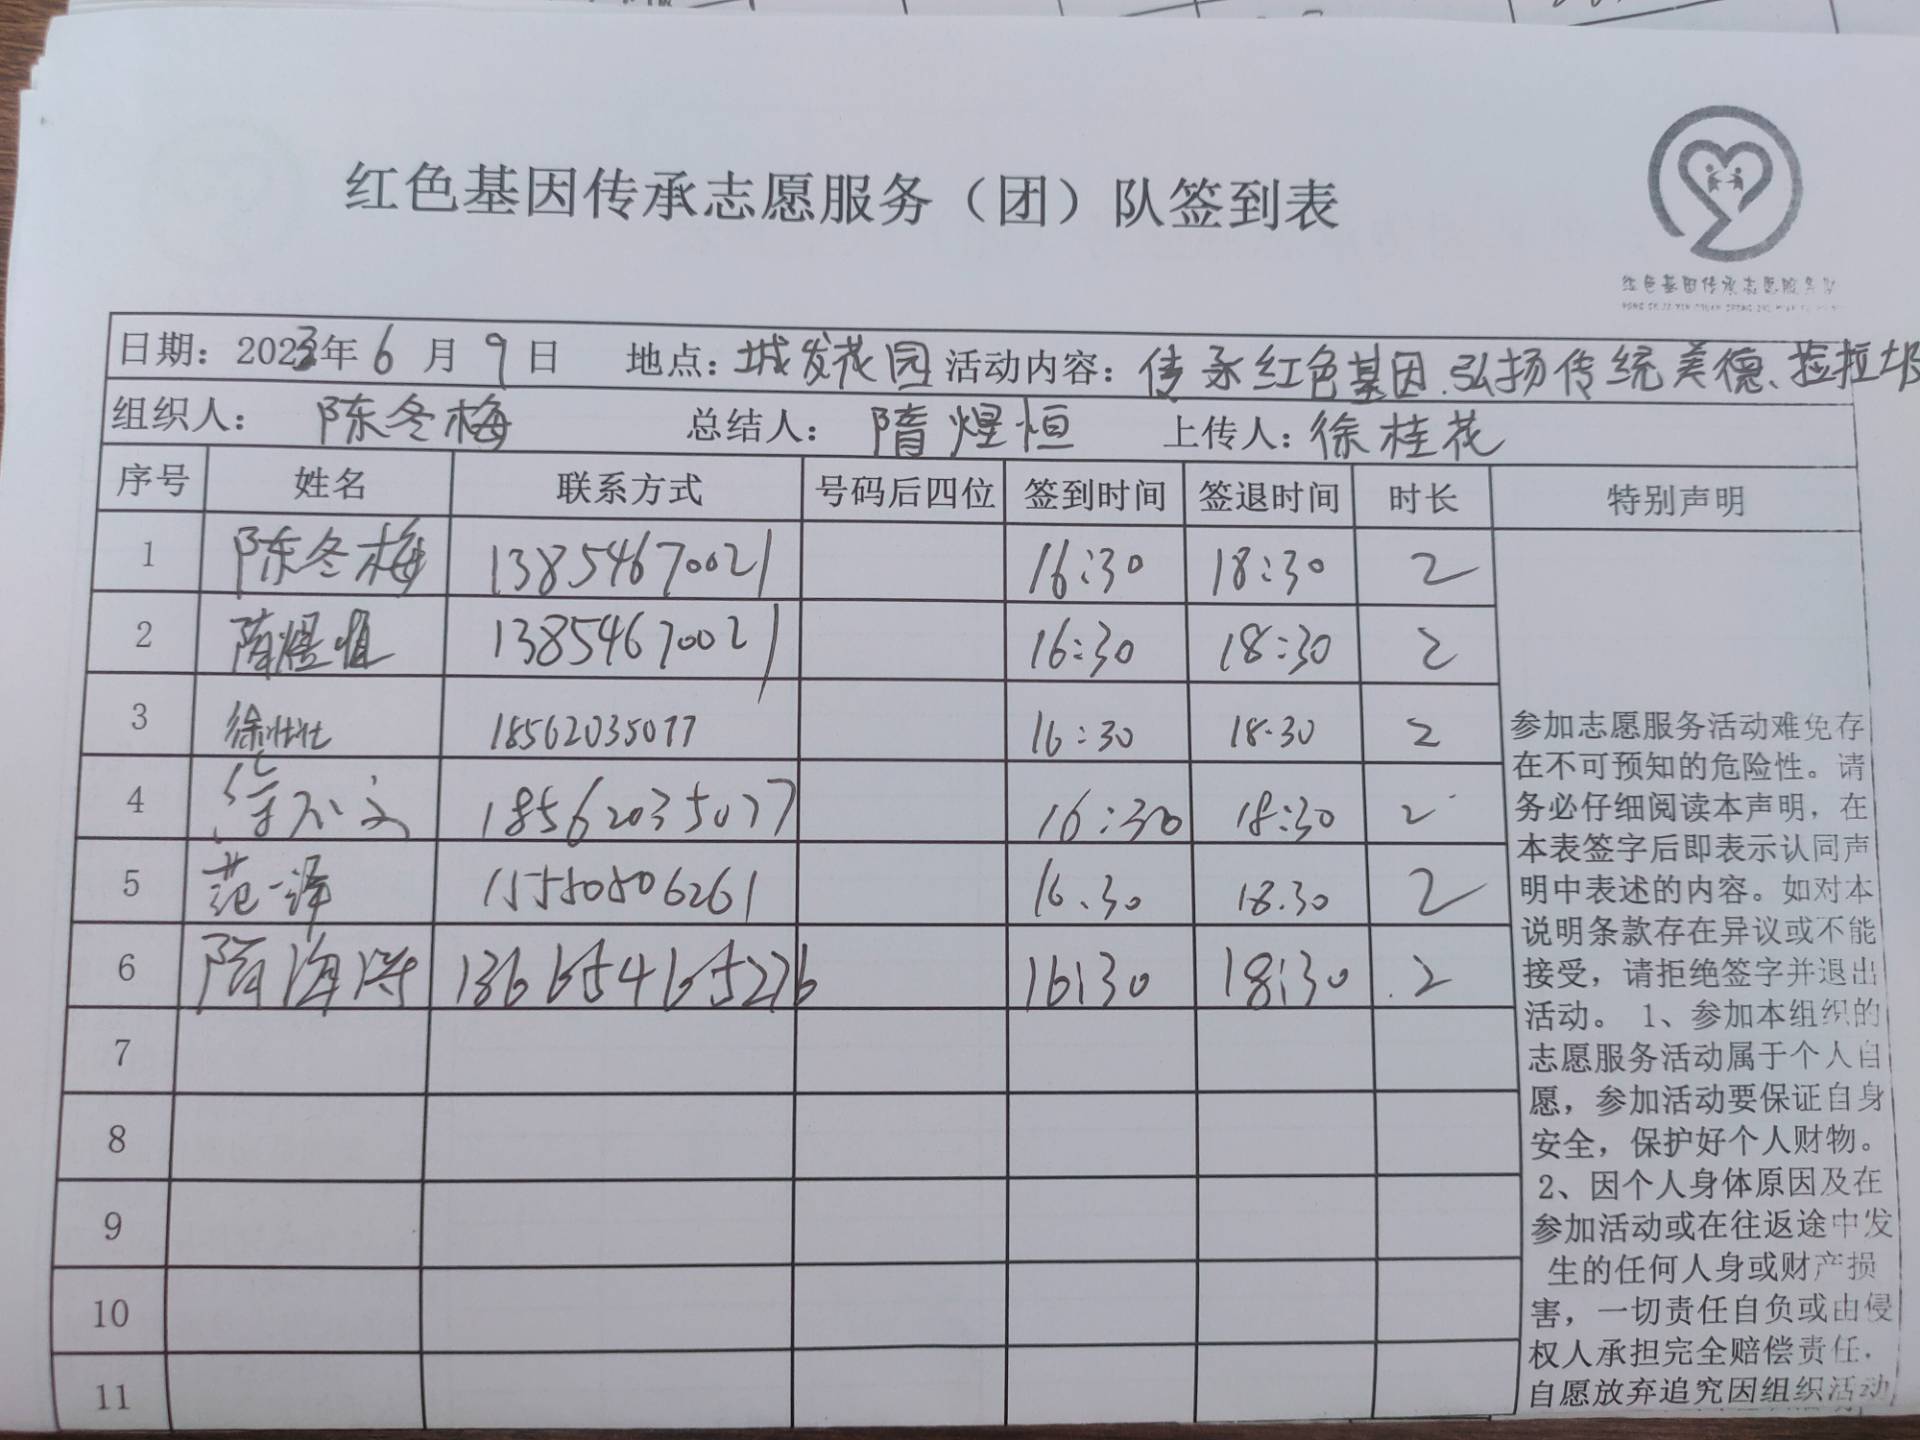 红色基因传承志愿服务（团）队签到表
红色基因传承志愿服务队
日期：2023年6月9日 地点：城发花园 活动内容：传承红色基因、弘扬传统美德、捡拉圾
组织人：陈冬梅 总结人：隋煜恒 上传人：徐桂花
序号 姓名 联系方式 号码后四位 签到时间 签退时间 时长 特别声明
1 陈冬梅 13854670021 16:30 18:30 2
2 隋煜恒 13854670021 16:30 18:30 2
3 徐 18562035077 16:30 18:30 2
4 18562035077 16:30 18:30 2
5 范一泽 15550506261 16.30 18.30 2
6 隋海 13665465276 16:30 18:30 2
7
8
9
10
11
参加志愿服务活动难免存
在不可预知的危险性。请
务必仔细阅读本声明，在
本表签字后即表示认同声
明中表述的内容。如对本
说明条款存在异议或不能
接受，请拒绝签字并退出
活动。 1、参加本组织的
志愿服务活动属于个人自
愿，参加活动要保证自身
安全，保护好个人财物。
2、因个人身体原因及在
参加活动或在往返途中发
生的任何人身或财产损
害，一切责任自负或由侵
权人承担完全赔偿责任，
自愿放弃追究因组织活动